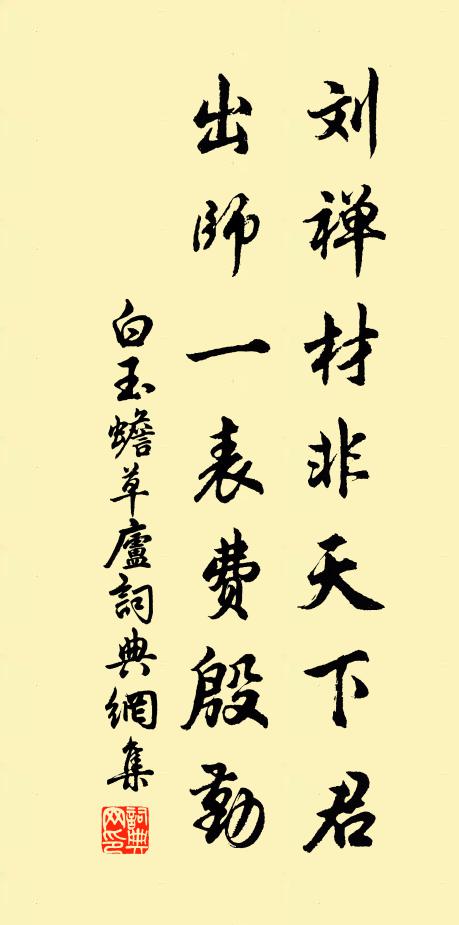 刘禅材非天下君
出师一表费殷勤
白玉蟾草廬詞典網集
詞典网印